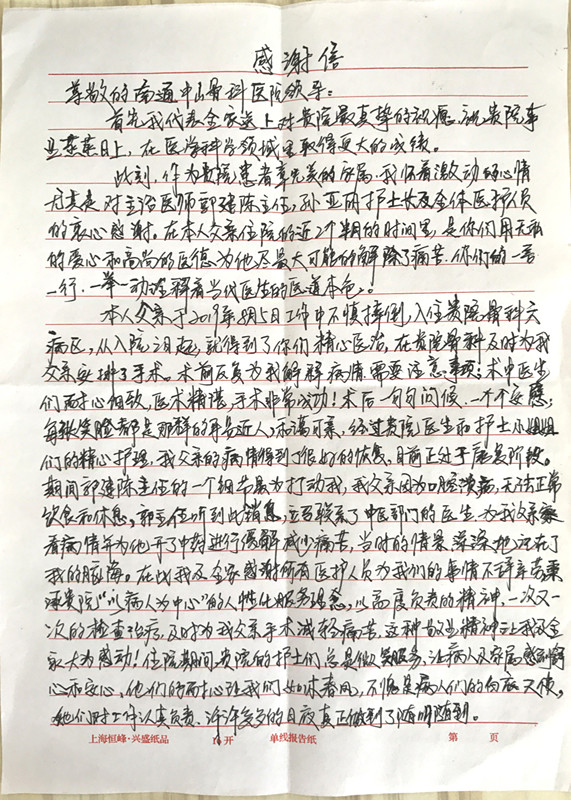 感谢信
尊敬的南通中山骨科医院领导：
首先我代表全家送上对贵院最真挚的祝愿，祝贵院事
业蒸蒸日上，在医学科学领域里取得更大的成绩。
此刻，作为贵院患者章先美的家属，我怀着激动的心情
尤其是对主治医师郭建陈主任，孙亚丽护士长及全体医护人员
的衷心感谢。在本人父亲住院的近2个半月的时间里，是你们用无私
的爱心和高尚的医德为他尽最大可能的解除了病苦。你们的一言
一行，一举一动诠释着当代医生的医道本色。
本人父亲于2019年 月5日工作中不慎摔倒，入住贵院骨科六
病区，从入院之日起，就得到了你们精心医治，在贵院骨科及时为我
父亲安排了手术。术前反复为我们解释病情需要注意事项；术中医生
们耐心细致，医术精湛，手术非常成功！术后一句句问候，一个个安慰；
每张笑脸都是那样的平易近人，和蔼可亲，经过贵院医生和护士小姐姐
们的精心护理，我父亲的病情得到了很好的恢复，目前正处于康复阶段。
期间郭建陈主任的一个细节最为打动我，我父亲因为口腔溃疡，无法正常
饮食和休息，郭主任听到此消息，立马联系了中医部门的医生，为我父亲
看病情并为他开了中药进行缓解减少痛苦，当时的情景深深地记在了
我的脑海。在此我及全家感谢所有医护人员为我们的事情不辞辛苦秉
承贵院“以病人为中心”的人性化服务理念，以高度负责的精神，一次又一
次的检查治疗，及时为我父亲手术减轻痛苦，这种敬业精神让我及全
家大为感动！住院期间贵院的护士们总是微笑服务，让病人及家属感到舒
心和安心，他们的耐心让我们如沐春风，不愧是病人们的白衣天使，
她们对工作认真负责，许许多多的日夜真正做到了随叫随到。
上海恒峰·兴盛纸品 16开 单线报告纸 第 页